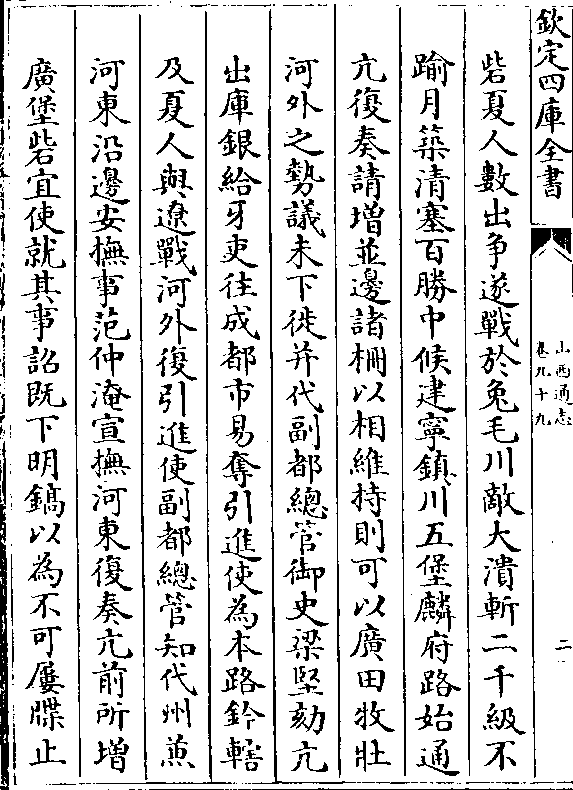 欽定四庫全書
山西通志
卷九十九
二
砦夏人數出争遂戰於兔毛川敵大潰斬二千級不
踰月築清塞百勝中候建寧鎮川五堡麟府路始通
亢復奏請增並邊諸柵以相維持則可以廣田牧壯
河外之勢議未下徙并代副都總管御史梁堅劾亢
出庫銀給牙吏往成都市易奪引進使為本路鈐轄
及夏人與遼戰河外復引進使副都總管知代州兼
河東沿邊安撫事范仲淹宣撫河東復奏亢前所增
廣堡砦宜使就其事詔既下明鎬以為不可屢牒止